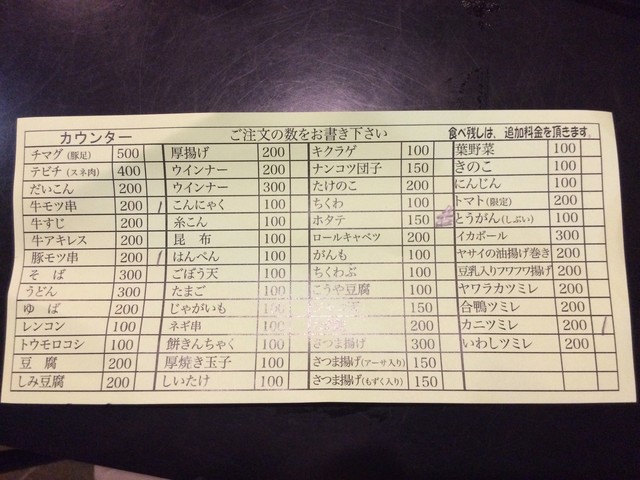 カウンター ご注文の数をお書き下さい 食べ残しは、追加料金を頂きます。
チマグ(豚足) 500 厚揚げ 200 キクラゲ 100 葉野菜 100
テビチ(スネ肉) 400 ウインナー 200 ナンコツ団子 150 きのこ 100
だいこん 200 ウインナー 300 たけのこ 200 にんじん 100
牛モツ串 200 / こんにゃく 100 ちくわ 100 トマト(限定) 200
牛すじ 200 糸こん 100 ホタテ 150 とうがん(しぶい) 100
牛アキレス 200 昆布 100 ロールキャベツ 200 イカボール 300
豚モツ串 200 / はんぺん 100 がんも 100 ヤサイの油揚げ巻き 200
そば 300 ごぼう天 100 ちくわぶ 100 豆乳入りフワフワ揚げ 200
うどん 300 たまご 100 こうや豆腐 100 ヤワラカツミレ 200
ゆば 200 じゃがいも 150 合鴨ツミレ 200
レンコン 100 ネギ串 200 カニツミレ 200 /
トウモロコシ 100 餅きんちゃく 100 さつま揚げ 300 いわしツミレ 200
豆腐 200 厚焼き玉子 100 さつま揚げ(アーサ入り) 150
しみ豆腐 200 しいたけ 100 さつま揚げ(もずく入り) 150